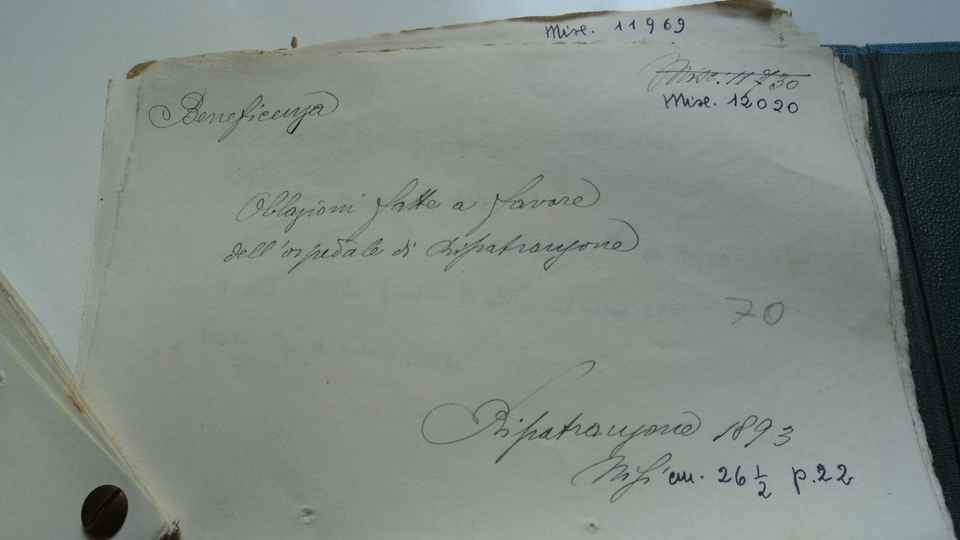 Misc. 11969
Misc. 11730
Misc. 12020
Beneficenza
Oblazioni fatte a favore
dell'ospedale di Ripatranzone
70
Ripatranzone 1893
cm. 26 1/2 p. 22